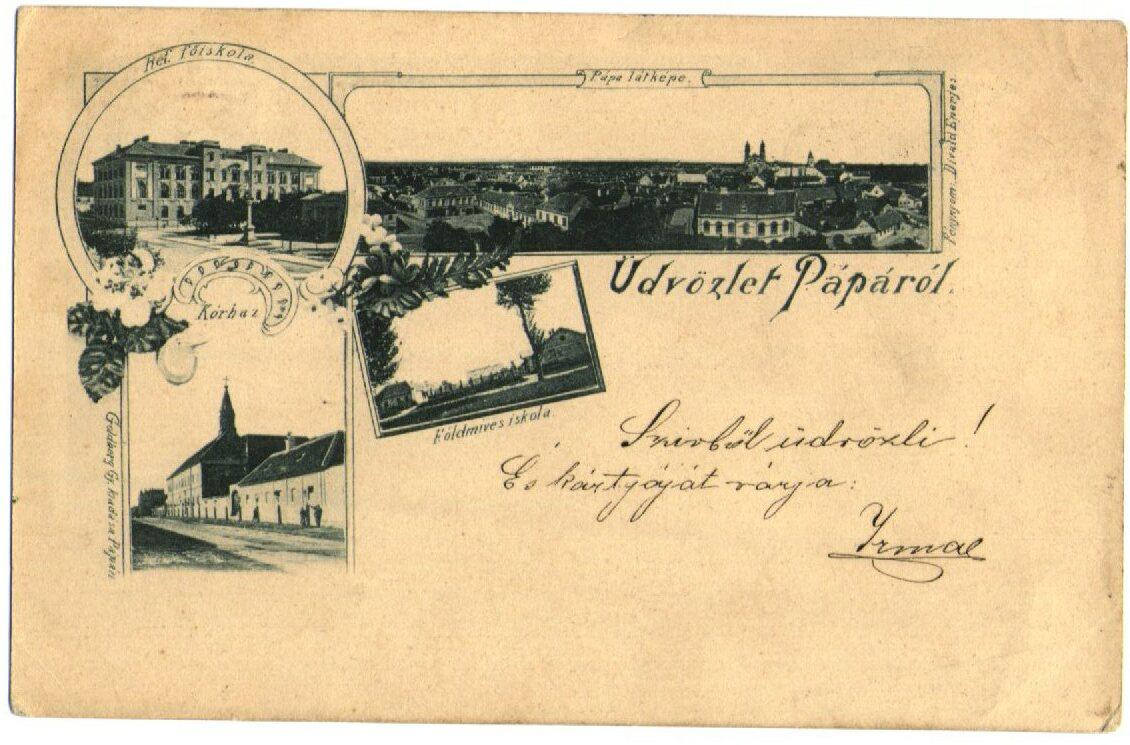 Ref. főiskola.
Pápa látképe.
Fénynyom. Divald Eperjes
Üdvözlet Pápáról.
Kórház
Földmives iskola.
Goldberg Gy. kiadása Pápán
Szivből üdvözli!
És kártyáját várja:
Irma